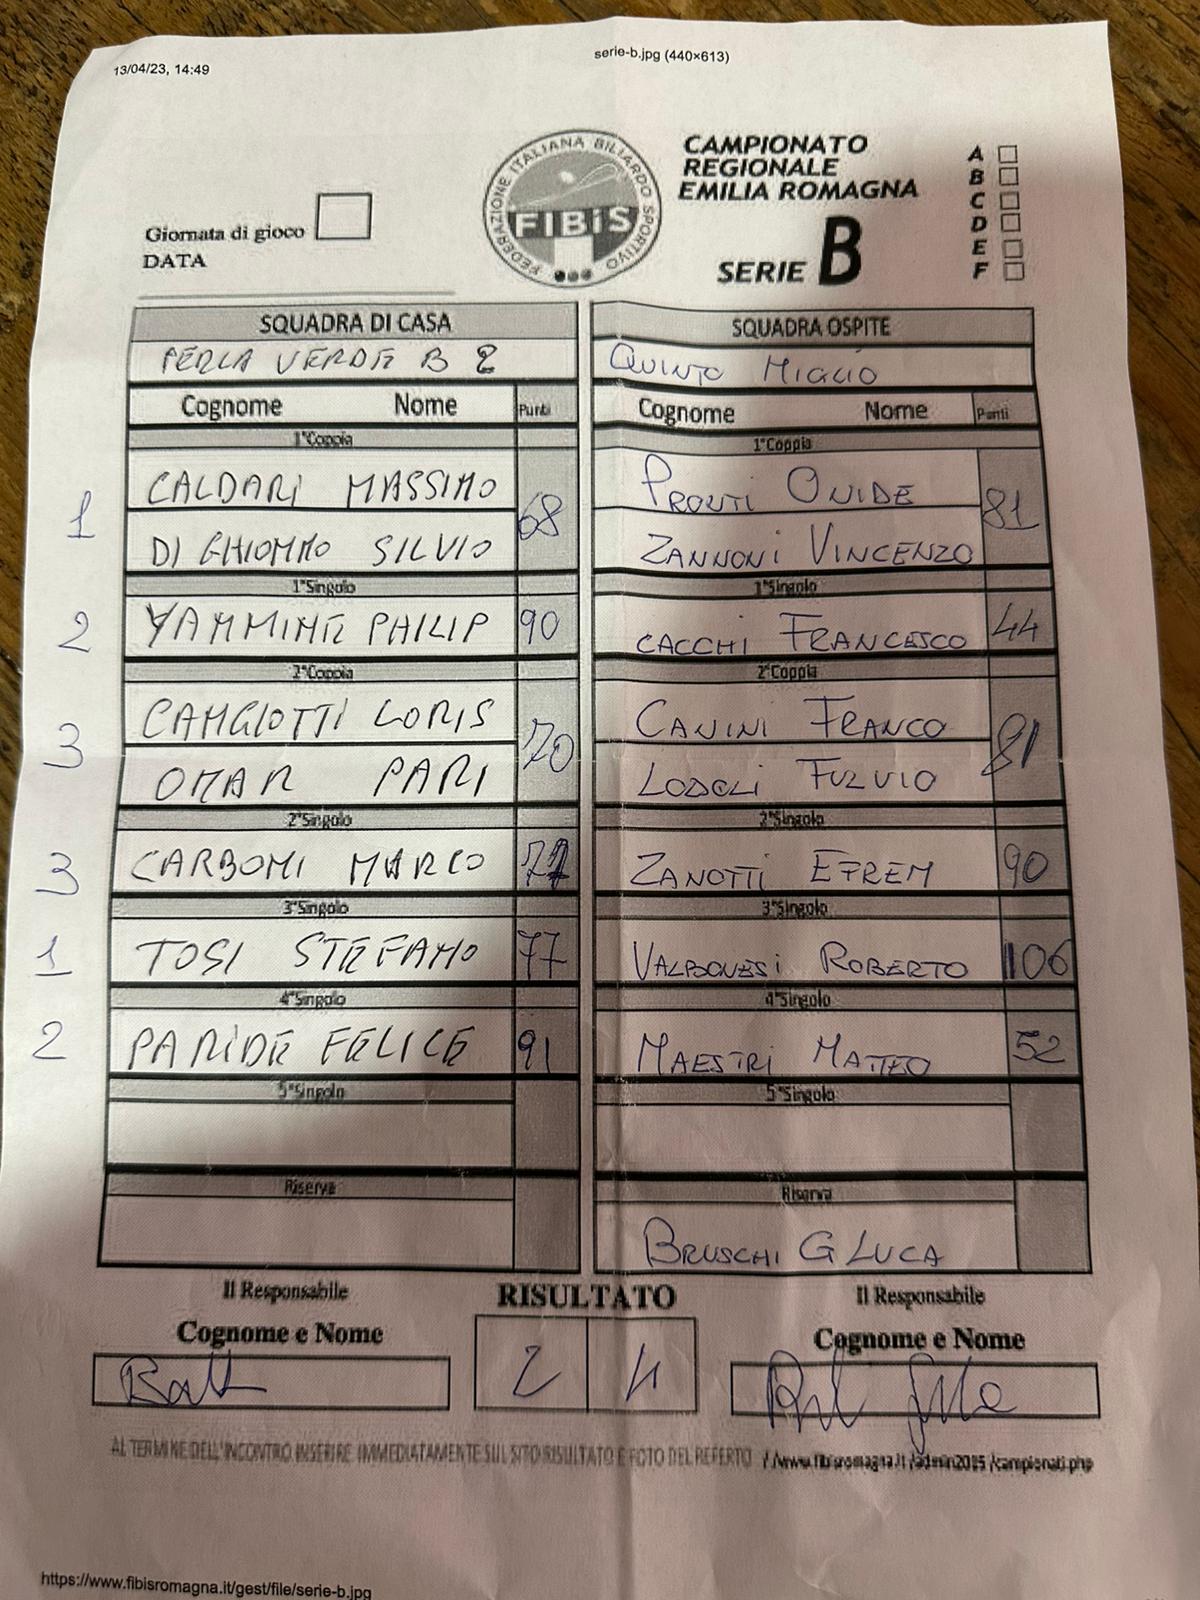 13/04/23, 14:49
serie-b.jpg (440×613)
FEDERAZIONE ITALIANA BILIARDO SPORTIVO
FIBiS
CAMPIONATO
REGIONALE
EMILIA ROMAGNA
SERIE B
A
B
C
D
E
F
Giornata di gioco
DATA
SQUADRA DI CASA
SQUADRA OSPITE
PERLA VERDE B 2
QUINTO MIGLIO
Cognome Nome Punti
Cognome Nome Punti
1°Coppia
1°Coppia
1
CALDARI MASSIMO
DI GHIOMMO SILVIO
68
PRONTI OVIDE
ZANNONI VINCENZO
81
1°Singolo
1°Singolo
2 YAMMINE PHILIP 90
CACCHI FRANCESCO 44
2°Coppia
2°Coppia
3
CAMGIOTTI LORIS
OMAR PARI
70
CANINI FRANCO
LODOLI FULVIO
81
2°Singolo
2°Singolo
3 CARBONI MARCO
ZANOTTI EFREM 90
3°Singolo
3°Singolo
1 TOSI STEFANO 77
VALBONESI ROBERTO 106
4°Singolo
4°Singolo
2 PARIDE FELICE 91
MAESTRI MATTEO 52
5°Singolo
5°Singolo
Riserva
Riserva
BRUSCHI G LUCA
Il Responsabile
RISULTATO
Il Responsabile
Cognome e Nome
Cognome e Nome
2 4
AL TERMINE DELL'INCONTRO INSERIRE IMMEDIATAMENTE SUL SITO RISULTATO E FOTO DEL REFERTO //www.fibisromagna.it /admin2015 /campionati.php
https://www.fibisromagna.it/gest/file/serie-b.jpg